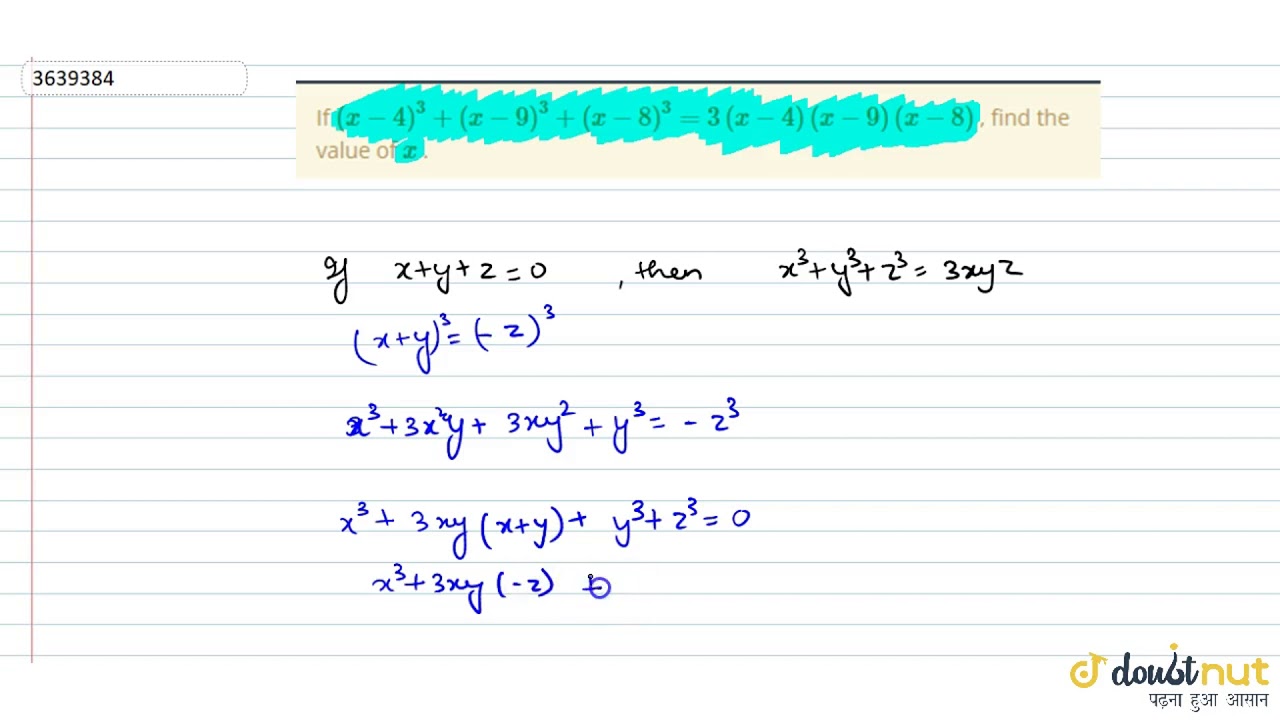 3639384
If (x − 4)³ + (x − 9)³ + (x − 8)³ = 3 (x − 4) (x − 9) (x − 8) , find the
value of x .
If x+y+z=0 , then x³+y³+z³= 3xyz
(x+y)³=(-z)³
x³+3x²y+ 3xy²+y³= -z³
x³+ 3xy(x+y)+ y³+z³=0
x³+3xy(-z) +
doubtnut
पढ़ना हुआ आसान